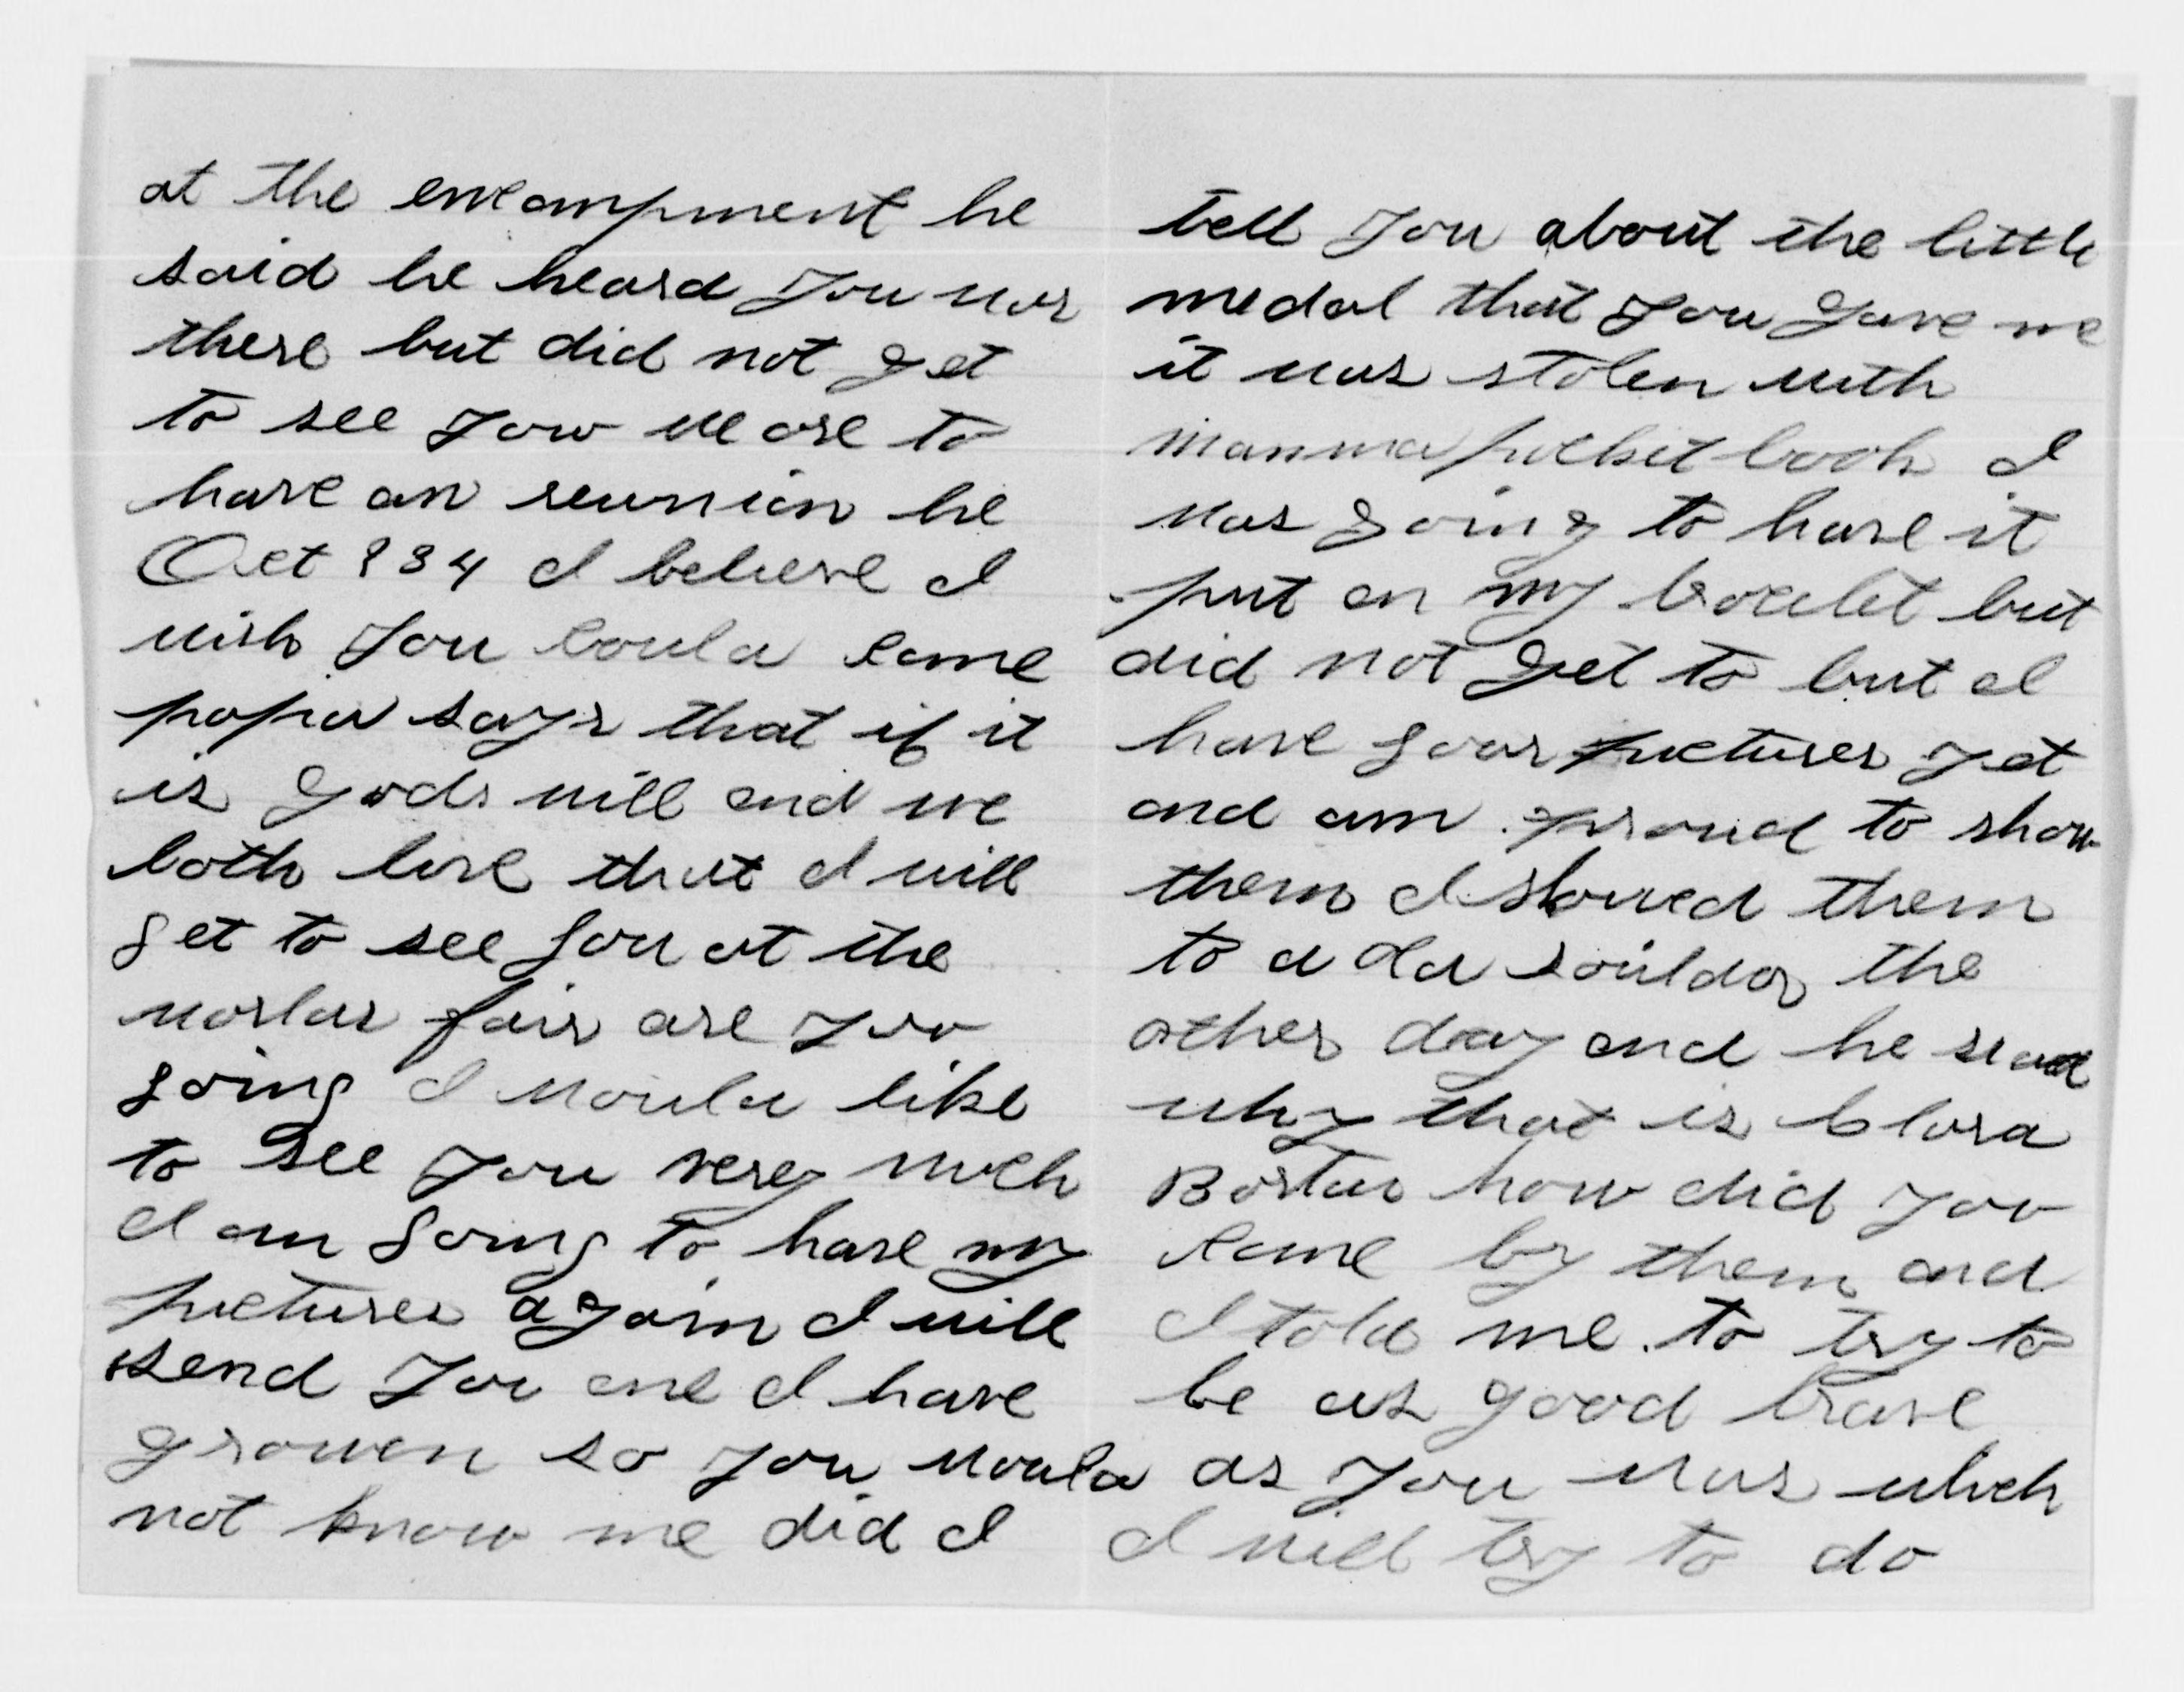 at the encampment he
said he heard you was
there but did not get
to see you we are to
have an reunion he
Oct 834 I believe I
wish you could come
papa says that if it
is gods will and we
both live that I will
get to see you at the
worlds fair are you
going I would like
to see you very much
I am going to have my
pictures again I will
send you one I have
growen so you would
not know me did I
tell you about the little
medal that you gave me
it was stolen with
mamma pocket book I
was going to have it
put on my bracelet but
did not get to but I
have your pictures yet
and am proud to show
them I showed them
to a old souldar the
other day and he said
why that is Clara
Barton how did you
come by them and
I told me to try to
be as good brave
as you was which
I will try to do